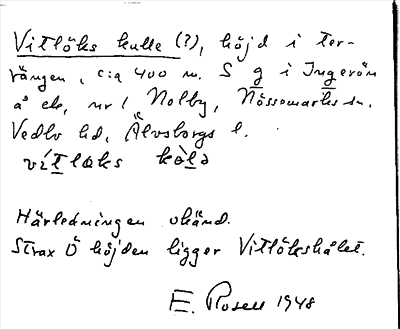 Vitlöks kulle (?), höjd i ter-
rängen, c:a 400 m. S g i Ingerön
å ek, nr 1 Nolby, Nössemarks sn.
Vedbo hd, Älvsborgs l.
vítlaks kòlə
Härledningen okänd.
Strax Ö höjden ligger Vitlökshålet.
E. Rosell 1948